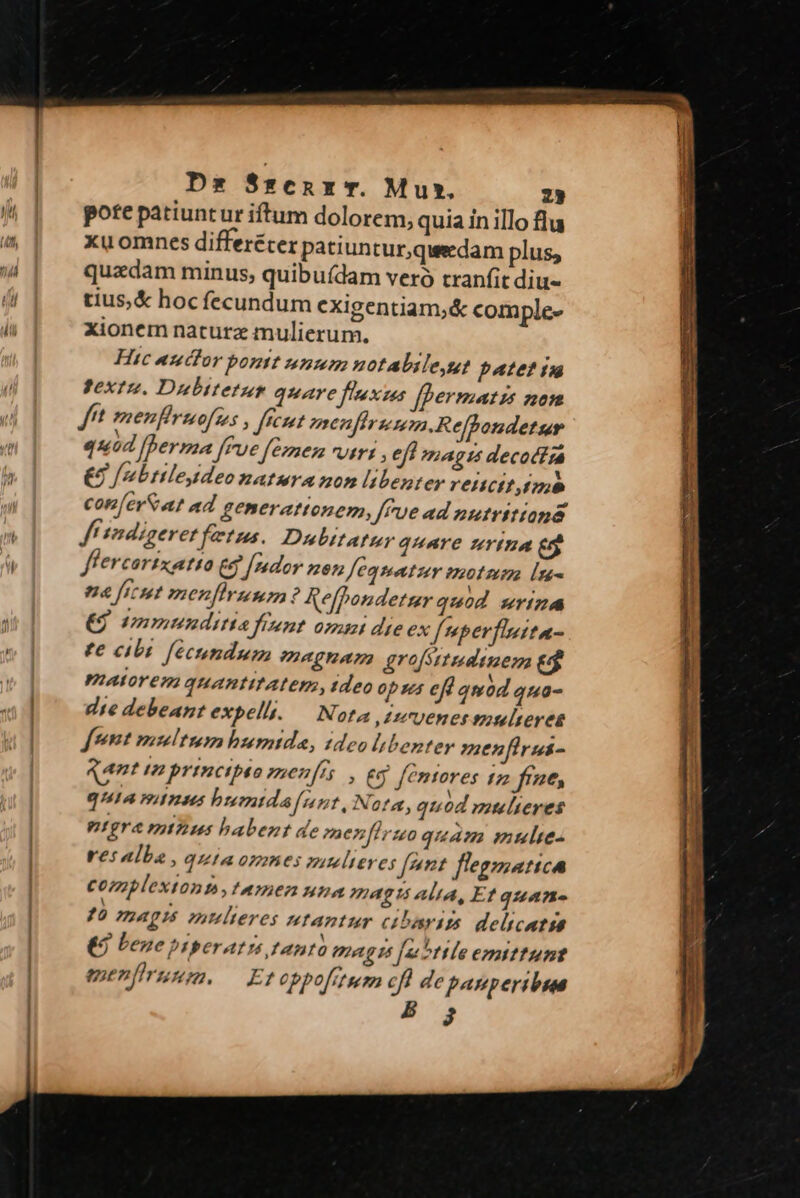 De Secret. Mul. 29
pore patiuntur iſtum dolorem, quia in illo flu
xu omnes differẽter patiuntur, quædam plus,
quædam minus, quibuſdam verò tranſit diu-
tius, & hoc ſecundum exigentiam, & comple-
xionem naturæ mulierum.
Hic auctor ponit unum notabile, ut patet in
textu. Dubitetur quare fluxus ſpermatis non
ſit menſtruoſus, ſicut menſtruum. Reſpondetur
quòd ſperma ſive ſemen viri, eſt magis decoctũ
& ſubtile, ideo natura non libenter reiicit, imò
conſervat ad generationem, ſive ad nutritionẽ
ſi indigeret fœtus. Dubitatur quare urina &
ſtercorixatio & ſudor non ſequatur motum lu-
næ ſicut menſtruum? Reſpondetur quod urina
& immunditia fiunt omni die ex ſuperfluita-
te cibi ſecundum magnam groſſitudinem &
maiorem quantitatem, ideo opus eſt quòd quo-
die debeant expelli. Nota, iuvenes mulieres
ſunt multum humidæ, ideo libenter menſtrui-
Zant in principio menſis, & ſeniores in fine,
quia minus humidæ ſunt, Nota, quòd mulieres
nigræ minus habent de menſtruo quàm mulie-
res albæ, quia omnes mulieres ſunt flegmatica
complexionis, tamen una magis alia, Et quan-
tò magis mulieres utantur cibariis delicatis
& bene piperatis, tantò magis ſubtile emittunt
menſtruum. Et oppoſitum eſt de pauperibus
B 3